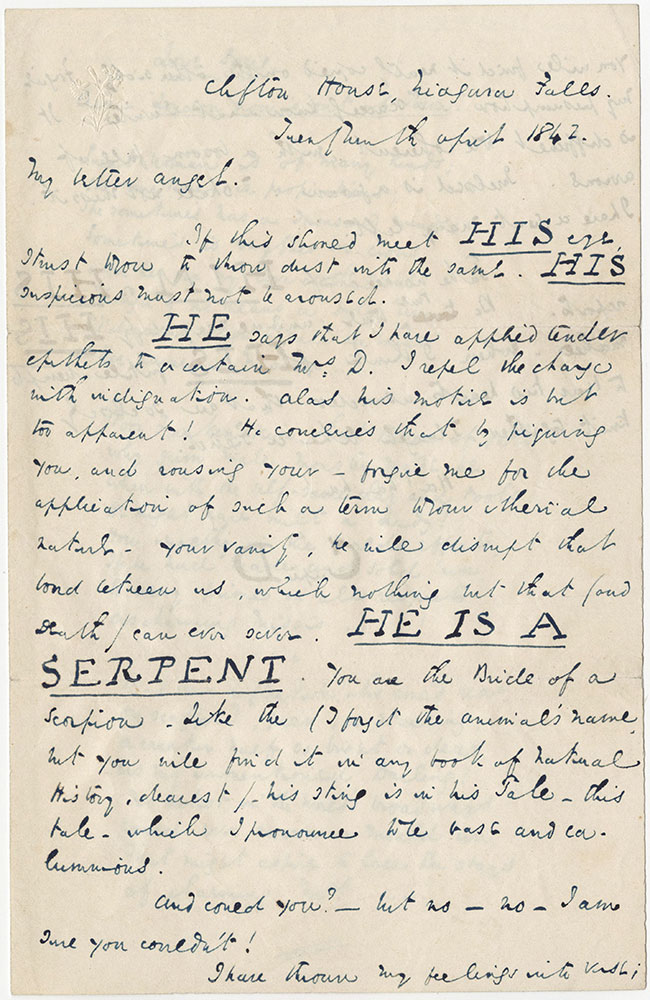 Clifton House, Niagara Falls.
Twenty ninth April 1842.
My better angel.
If this should meet HIS eye,
I trust to you to throw dust in the same. HIS
suspicions must not be aroused.
HE says that I have applied tender
epithets to a certain Mrs D. I repel the charge
with indignation. Alas his motive is but
too apparent! He conceives that by piquing
you, and rousing your – forgive me for the
application of such a term to your etherial
nature – your vanity, he will disrupt that
bond between us, which nothing but that (and
Death) can ever sever. HE IS A
SERPENT. You are the Bride of a
Scorpion. Like the (I forget the animal's name,
but you will find it in any book of Natural
History, dearest) – his sting is in his Tale – this
tale – which I pronounce to be base and ca-
lumnious.
And could you? – but no – no – I am
sure you couldn't!
I have thrown my feelings into verse;